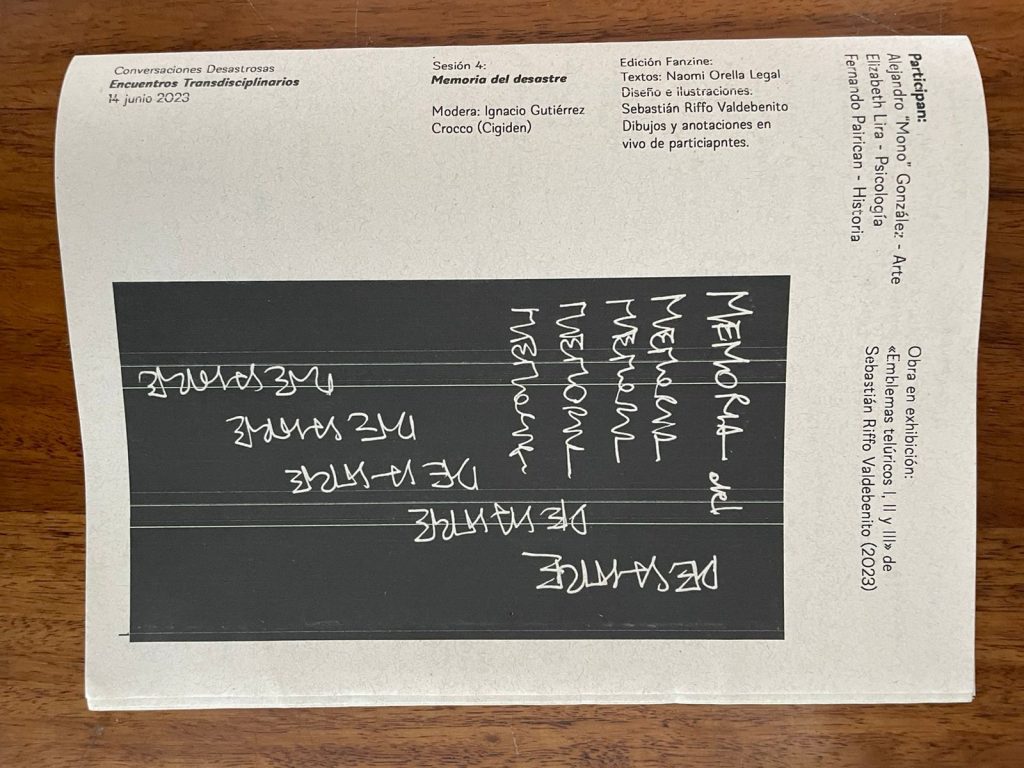 Conversaciones Desastrosas
Encuentros Transdisciplinarios
14 junio 2023
Sesión 4:
Memoria del desastre
Modera: Ignacio Gutiérrez
Crocco (Cigiden)
Edición Fanzine:
Textos: Naomi Orella Legal
Diseño e ilustraciones:
Sebastián Riffo Valdebenito
Dibujos y anotaciones en
vivo de particiapntes.
Participan:
Alejandro "Mono" González - Arte
Elizabeth Lira - Psicología
Fernando Pairican - Historia
Obra en exhibición:
«Emblemas telúricos I, II y III» de
Sebastián Riffo Valdebenito (2023)
MEMORIA del